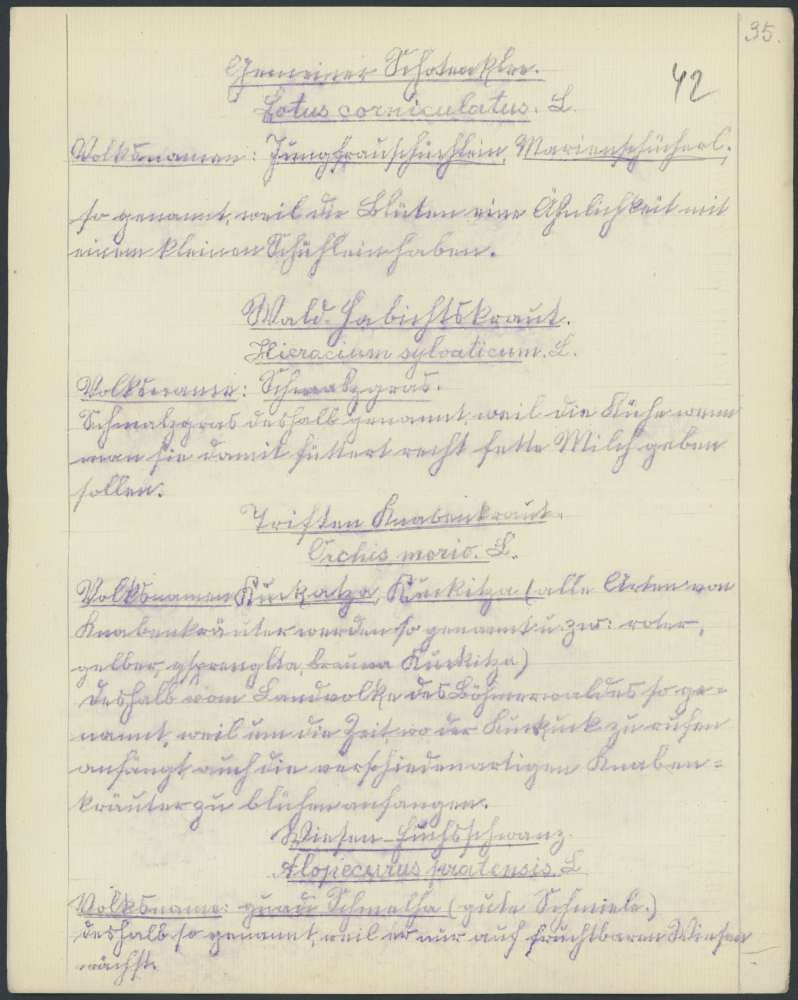 35.
42
Gemeiner Schotenklee.
Lotus corniculatus. L.
Volksnamen: Jungfrauschüchlein, Marienschücherl.
so genannt, weil die Blüten eine Ähnlichkeit mit
einem kleinen Schühlein haben.
Wald-Habichtskraut.
Hieracium sylvaticum. L.
Volksname: Schmalzgras.
Schmalzgras deshalb genannt, weil die Kühe wenn
man sie damit füttert recht fette Milch geben
sollen.
Triften Knabenkraut.
Orchis morio. L.
Volksnamen Kuckatza, Kuckitza (alle Arten von
Knabenkräuter werden so genannt u. zw: roter,
gelber, gsprenglta, brauna Kuckitza)
Deshalb vom Landvolke des Böhmerwaldes so ge=
nannt, weil um die Zeit, wo der Kuckuck zu rufen
anfängt, auch die verschiedenartigen Knaben=
kräuter zu blühen anfangen.
Wiesen-Fuchsschwanz.
Alopecurus pratensis. L
Volksname: guade Schmelha (gute Schmiele.)
deshalb so genannt, weil er nur auf fruchtbaren Wiesen
wächst.